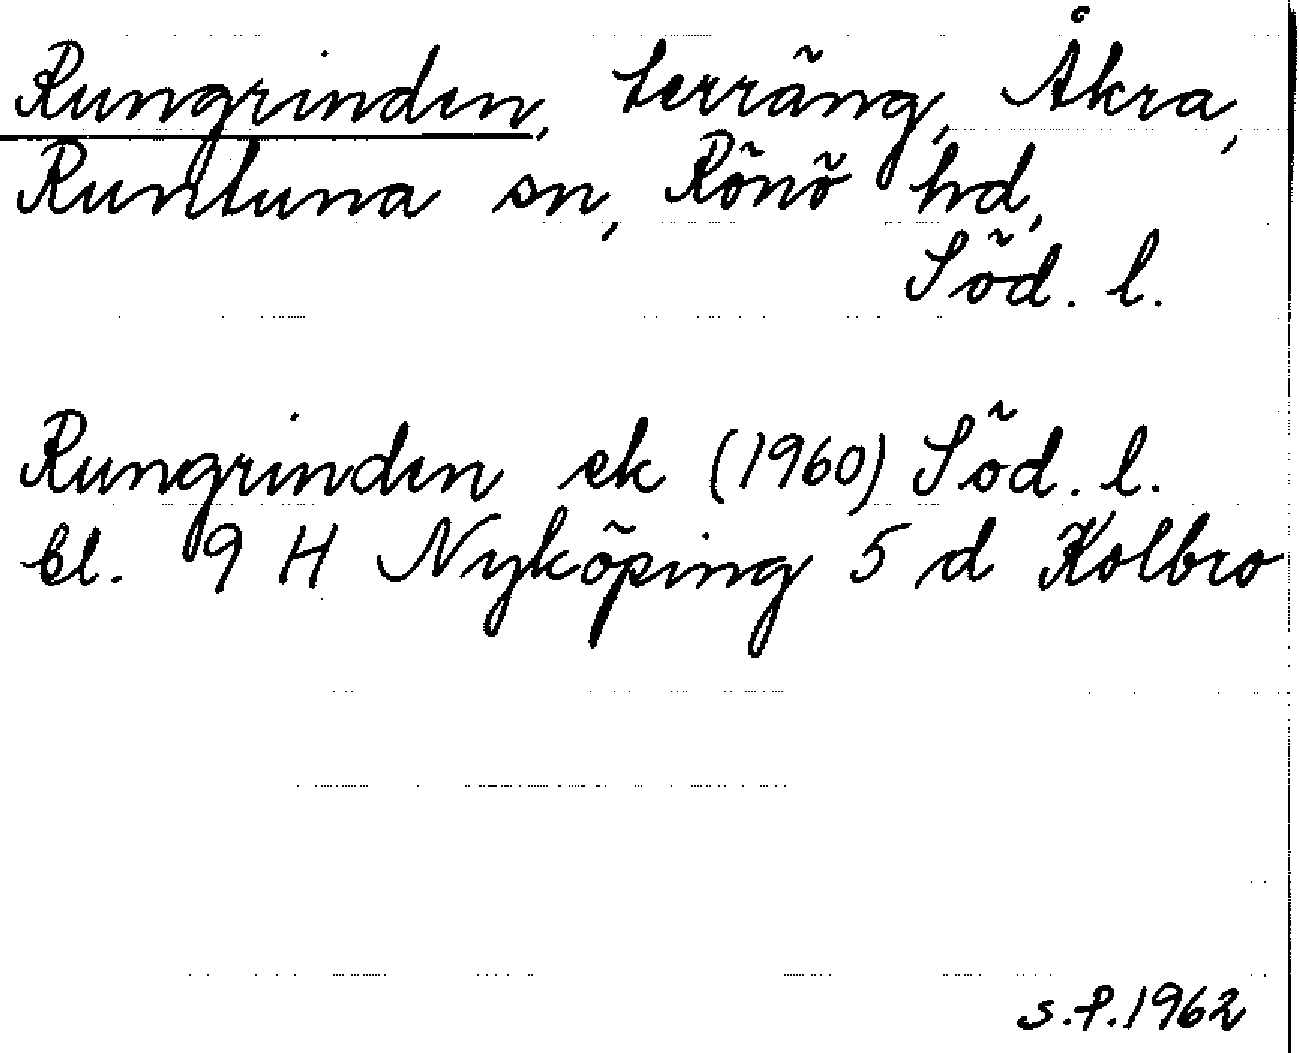 Rungrinden, terräng, Åkra,
Runtuna sn, Rönö hd,
Söd. l.
Rungrinden ek (1960) Söd. l.
bl. 9 H Nyköping 5 d Kolbro
S.P. 1962